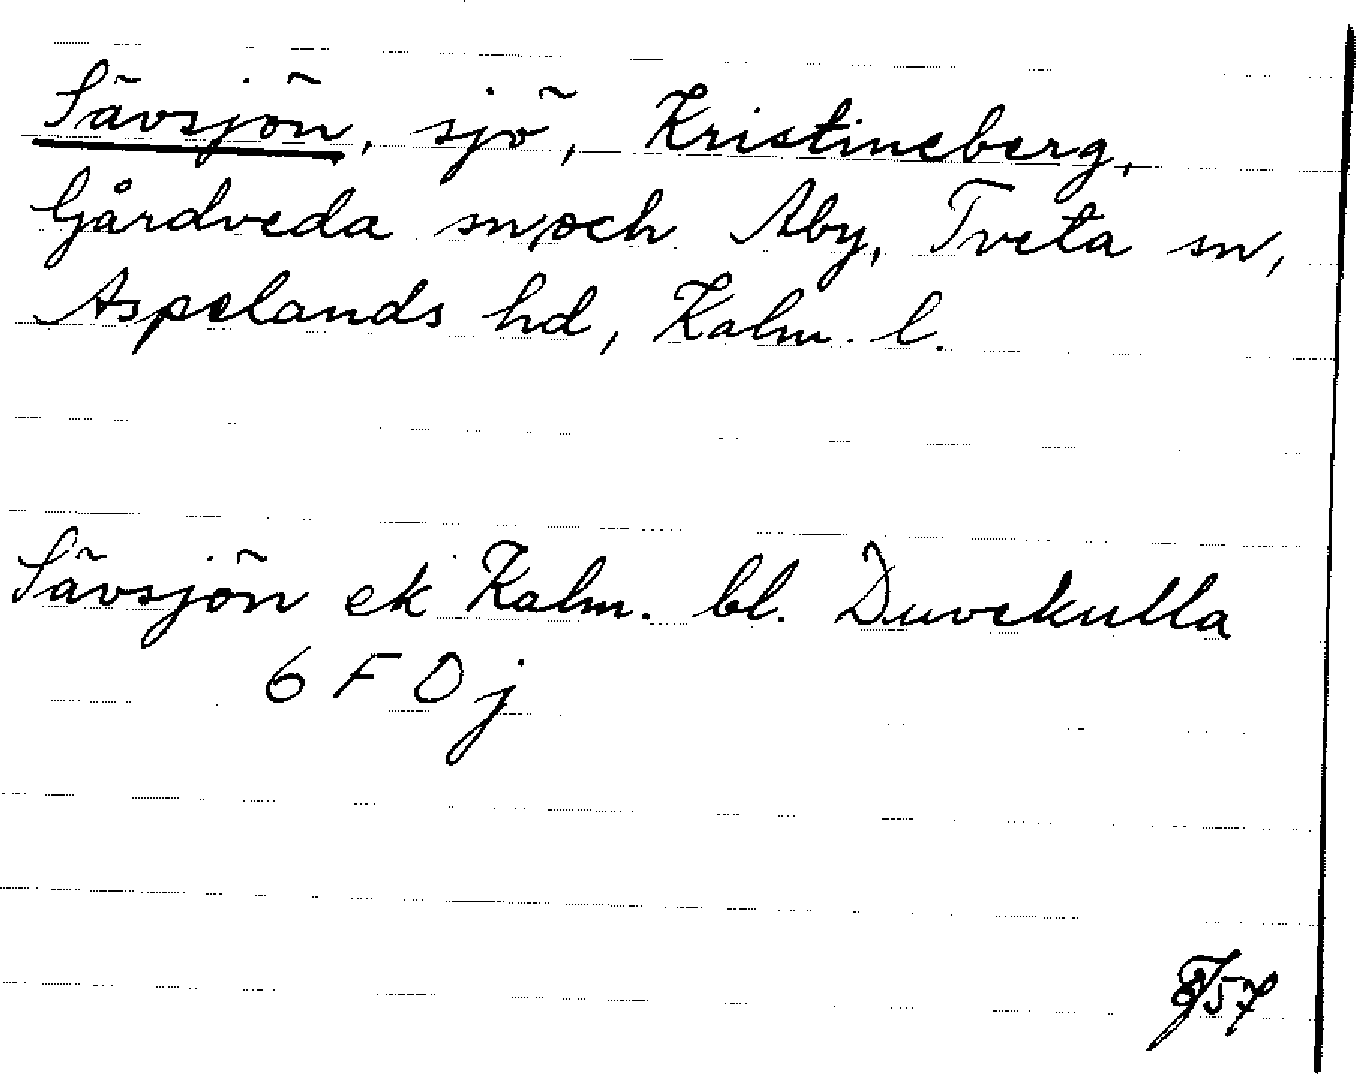 Sävsjön, sjö, Kristineberg,
Gårdveda sn, och Åby, Tveta sn,
Aspelands hd, Kalm. l.
Sävsjön ek Kalm. bl. Duvekulla
6 F 0 j